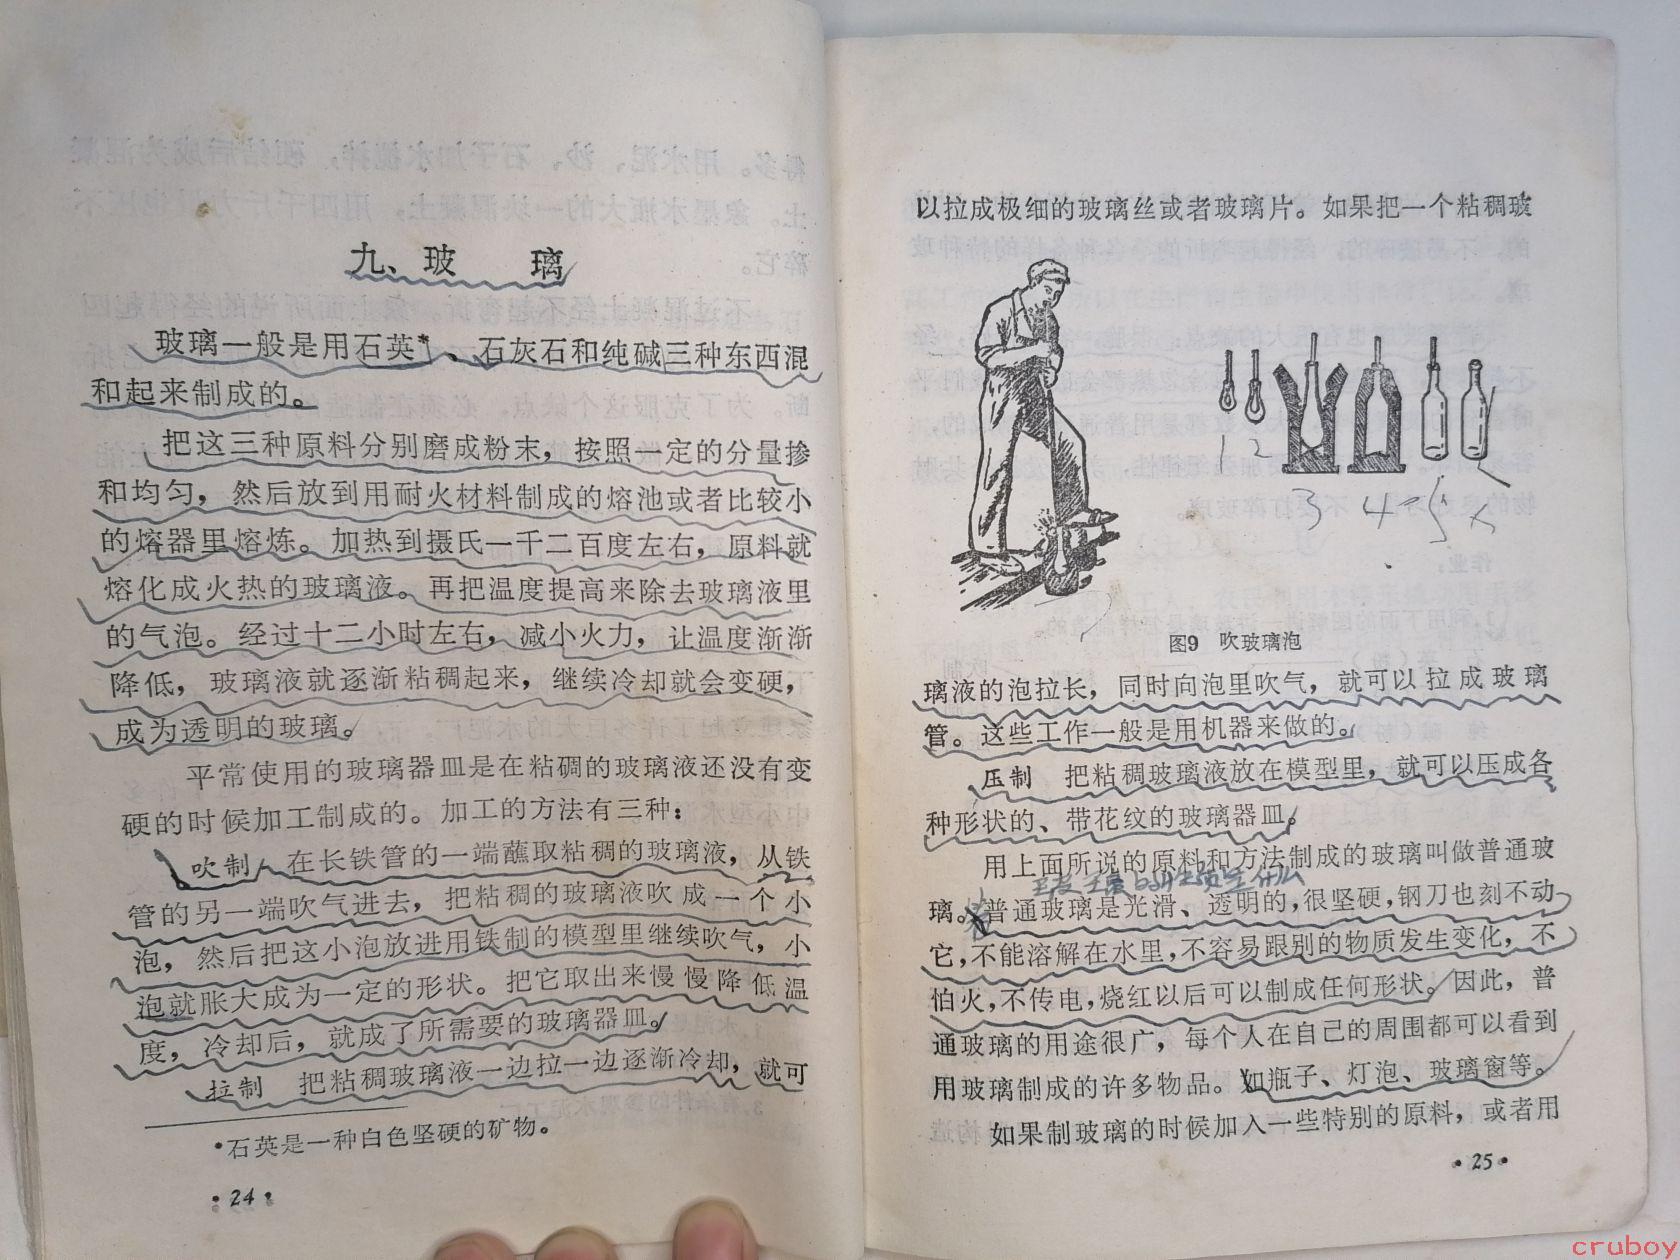 九、玻　璃
玻璃一般是用石英*、石灰石和纯碱三种东西混
和起来制成的。
把这三种原料分别磨成粉末，按照一定的分量掺
和均匀，然后放到用耐火材料制成的熔池或者比较小
的熔器里熔炼。加热到摄氏一千二百度左右，原料就
熔化成火热的玻璃液。再把温度提高来除去玻璃液里
的气泡。经过十二小时左右，减小火力，让温度渐渐
降低，玻璃液就逐渐粘稠起来，继续冷却就会变硬，
成为透明的玻璃。
平常使用的玻璃器皿是在粘稠的玻璃液还没有变
硬的时候加工制成的。加工的方法有三种：
吹制　在长铁管的一端蘸取粘稠的玻璃液，从铁
管的另一端吹气进去，把粘稠的玻璃液吹成一个小
泡，然后把这小泡放进用铁制的模型里继续吹气，小
泡就胀大成为一定的形状。把它取出来慢慢降低温
度，冷却后，就成了所需要的玻璃器皿。
拉制　把粘稠玻璃液一边拉一边逐渐冷却，就可
*石英是一种白色坚硬的矿物。
·24·
以拉成极细的玻璃丝或者玻璃片。如果把一个粘稠玻
1 2 3 4 5 6
图9　吹玻璃泡
璃液的泡拉长，同时向泡里吹气，就可以拉成玻璃
管。这些工作一般是用机器来做的。
压制　把粘稠玻璃液放在模型里，就可以压成各
种形状的、带花纹的玻璃器皿。
用上面所说的原料和方法制成的玻璃叫做普通玻
璃。普通玻璃是光滑、透明的，很坚硬，钢刀也刻不动
它，不能溶解在水里，不容易跟别的物质发生变化，不
怕火，不传电，烧红以后可以制成任何形状。因此，普
通玻璃的用途很广，每个人在自己的周围都可以看到
用玻璃制成的许多物品。如瓶子、灯泡、玻璃窗等。
如果制玻璃的时候加入一些特别的原料，或者用
·25·
cruboy